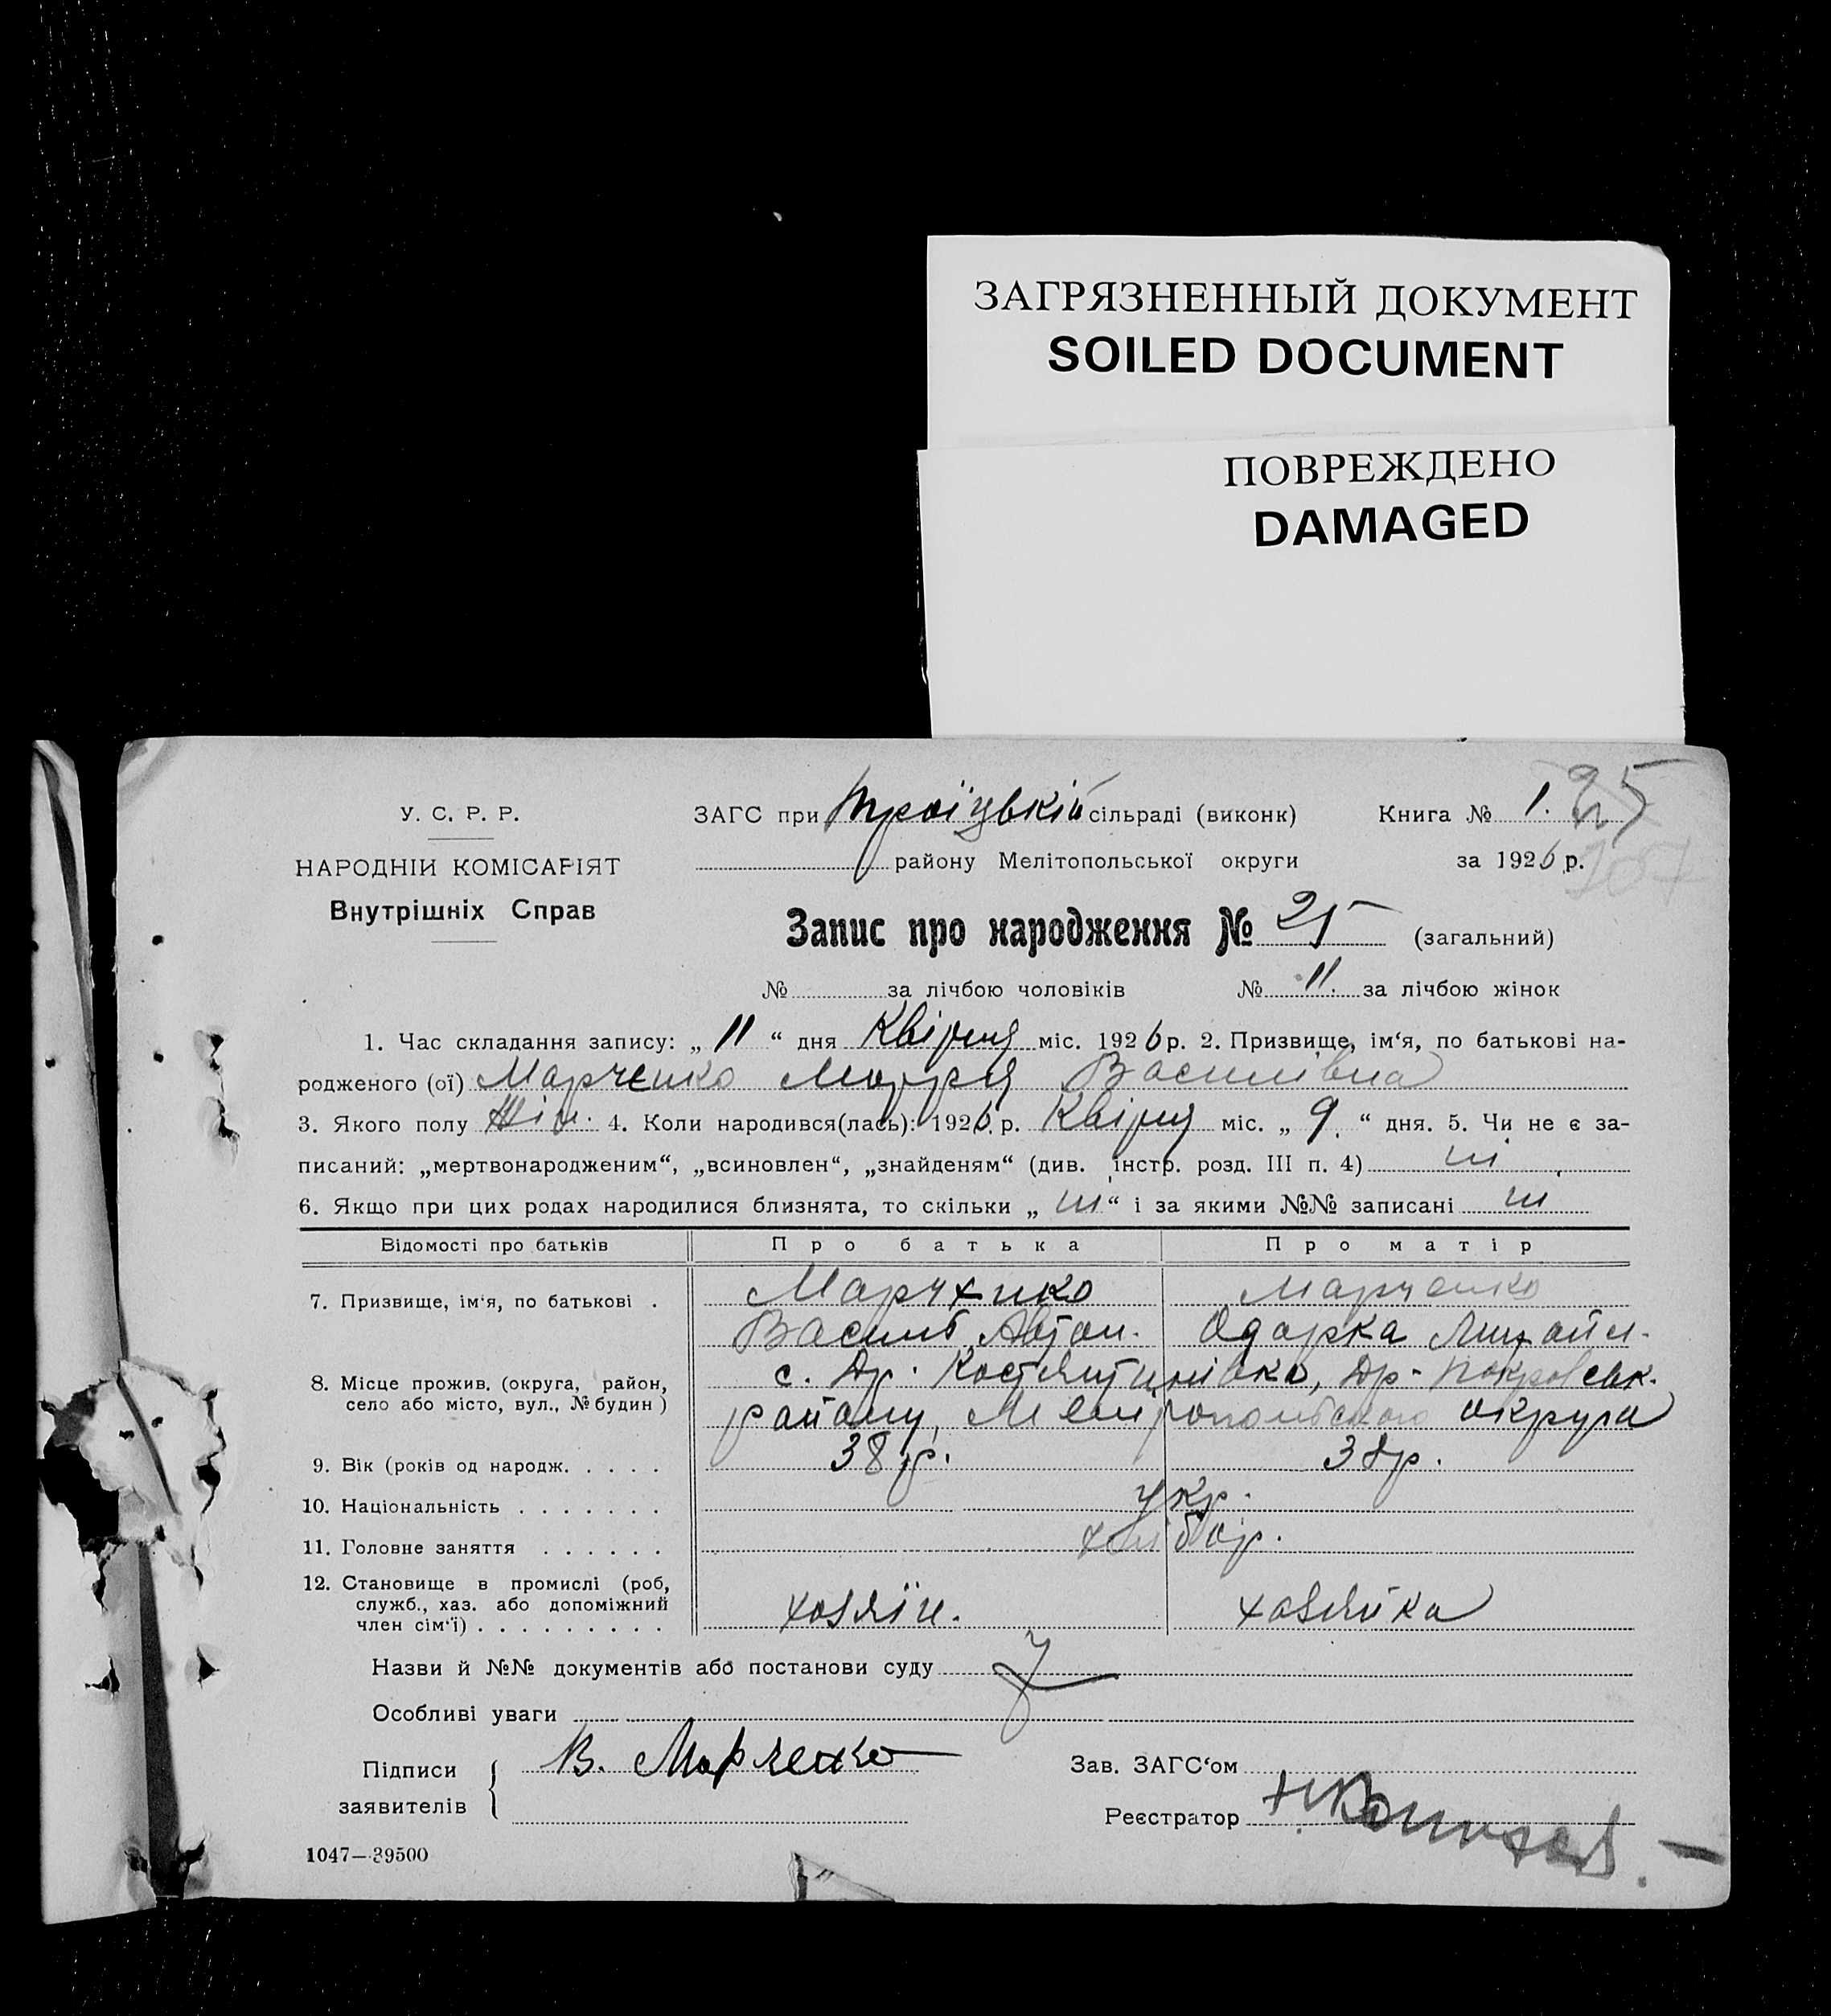 ЗАГРЯЗНЕННЫЙ ДОКУМЕНТ
SOILED DOCUMENT
ПОВРЕЖДЕНО
DAMAGED
У. С. Р. Р.
НАРОДНІИ КОМІСАРІЯТ
Внутрішніх Справ
ЗАГС при Троїцькій сільраді (виконк) Книга № 1. 25
району Мелітопольської округи за 1926 р. 107
Запис про народження № 25 (загальний)
№ за лічбою чоловіків № 11. за лічбою жінок
1. Час складання запису: „ 11 “ дня Квітня міс. 1926 р. 2. Призвище, ім‘я, по батькові на-
родженого (ої) Марченко Марія Василівна
3. Якого полу Жін. 4. Коли народився(лась): 1926. р. Квітня міс. „ 9. “ дня. 5. Чи не є за-
писаний: „мертвонародженим“, „всиновлен“, „знайденям“ (див. інстр. розд. III п. 4) ні
6. Якщо при цих родах народилися близнята, то скільки „ ні “ і за якими №№ записані ні
Відомості про батьків Про батька Про матір
7. Призвище, ім‘я, по батькові . Марченко Марченко
Василь Одарка Михайл.
8. Місце прожив. (округа, район, с. Др. Костянтинівка, Др-Покровськ.
село або місто, вул., № будин) району, Мелітопольського округа
9. Вік (років од народж. . . . . 38 р. 38 р.
10. Національність . . . . . . . укр.
11. Головне заняття . . . . . . хлібор.
12. Становище в промислі (роб,
служб., хаз. або допоміжний
член сім‘ї) . . . . . . . . . хозяїн. хозяйка
Назви й №№ документів або постанови суду
Особливі уваги
Підписи В. Марченко Зав. ЗАГС‘ом
заявителів Реєстратор
1047—39500